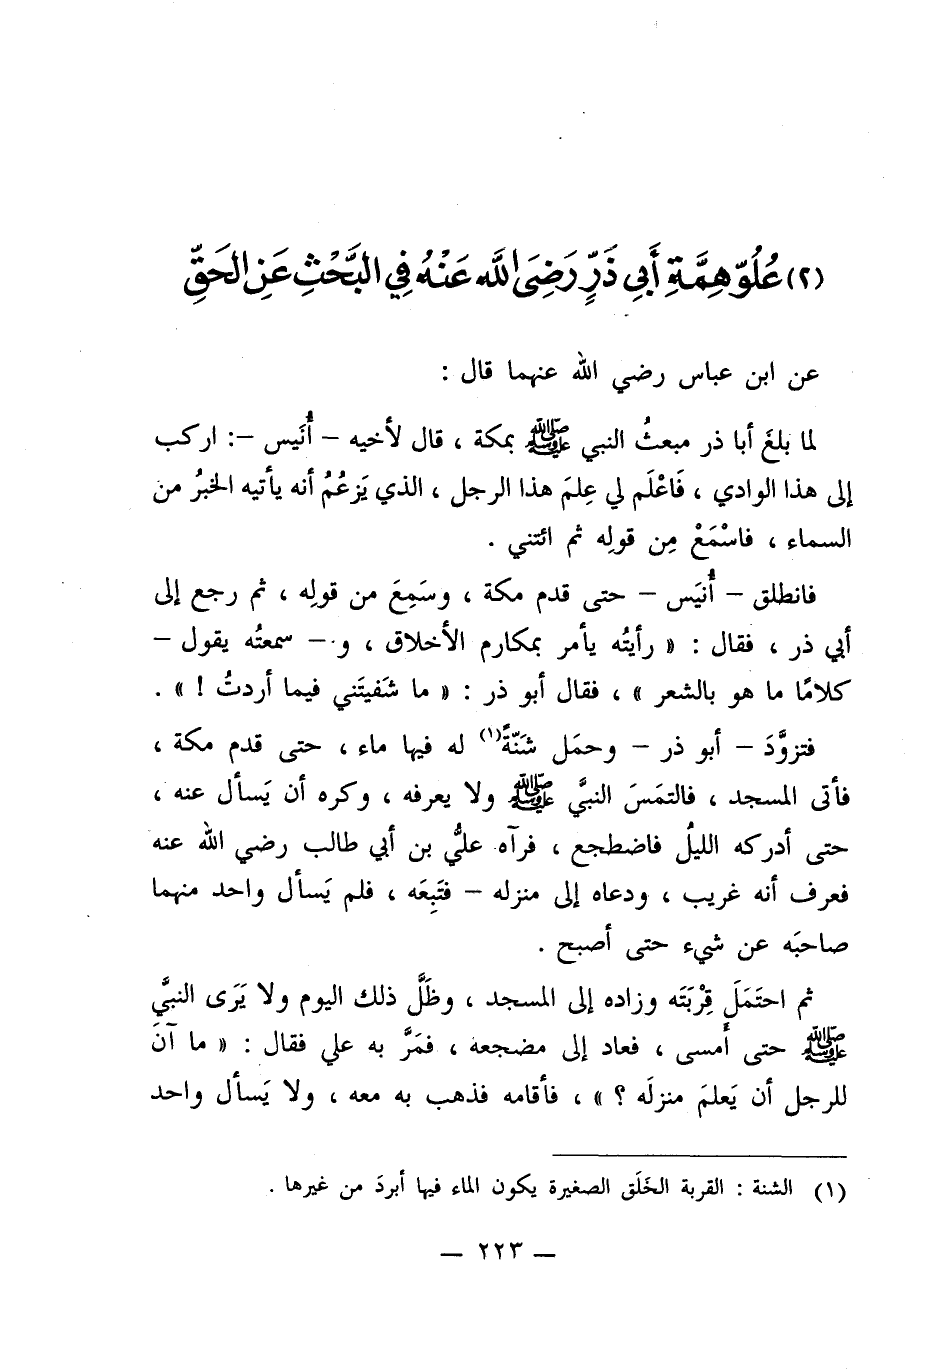 (٢) عُلُوّ هِمَّةِ أَبِي ذَرٍّ رَضِيَ اللَّه عَنْهُ فِي البَحْثِ عَنِ الحَقِّ
عن ابن عباس رضي الله عنهما قال :
لما بلغَ أبا ذر مبعثُ النبي ﷺ بمكة ، قال لأخيه – أُنَيس –: اركب
إلى هذا الوادي ، فَاعْلَم لي عِلمَ هذا الرجل ، الذي يَزعُمُ أنه يأتيه الخبرُ من
السماء ، فاسْمَعْ مِن قولِه ثم ائتني .
فانطلق – أُنَيَس – حتى قدم مكة ، وسَمِعَ من قولِه ، ثم رجع إلى
أبي ذر ، فقال : « رأيتُه يأمر بمكارم الأخلاق ، و – سمعتُه يقول –
كلامًا ما هو بالشعر » ، فقال أبو ذر : « ما شَفيتَني فيما أردتُ ! » .
فتزوَّدَ – أبو ذر – وحمَل شَنّةً(١) له فيها ماء ، حتى قدم مكة ،
فأتى المسجد ، فالتمَسَ النبيَّ ﷺ ولا يعرفه ، وكره أن يَسأل عنه ،
حتى أدركه الليلُ فاضطجع ، فرآه عليُّ بن أبي طالب رضي الله عنه
فعرف أنه غريب ، ودعاه إلى منزله – فتَبِعَه ، فلم يَسأل واحد منهما
صاحبَه عن شيء حتى أصبح .
ثم احتَمَلَ قِرْبَتَه وزاده إلى المسجد ، وظَلَّ ذلك اليوم ولا يَرَى النبيَّ
ﷺ حتى أَمسى ، فعاد إلى مضجعه ، فمَرَّ به علي فقال : « ما آنَ
للرجل أن يَعلمَ منزلَه ؟ » ، فأقامه فذهب به معه ، ولا يَسأل واحد
(١) الشنة : القربة الخَلَق الصغيرة يكون الماء فيها أبردَ من غيرها .
— ٢٢٣ —